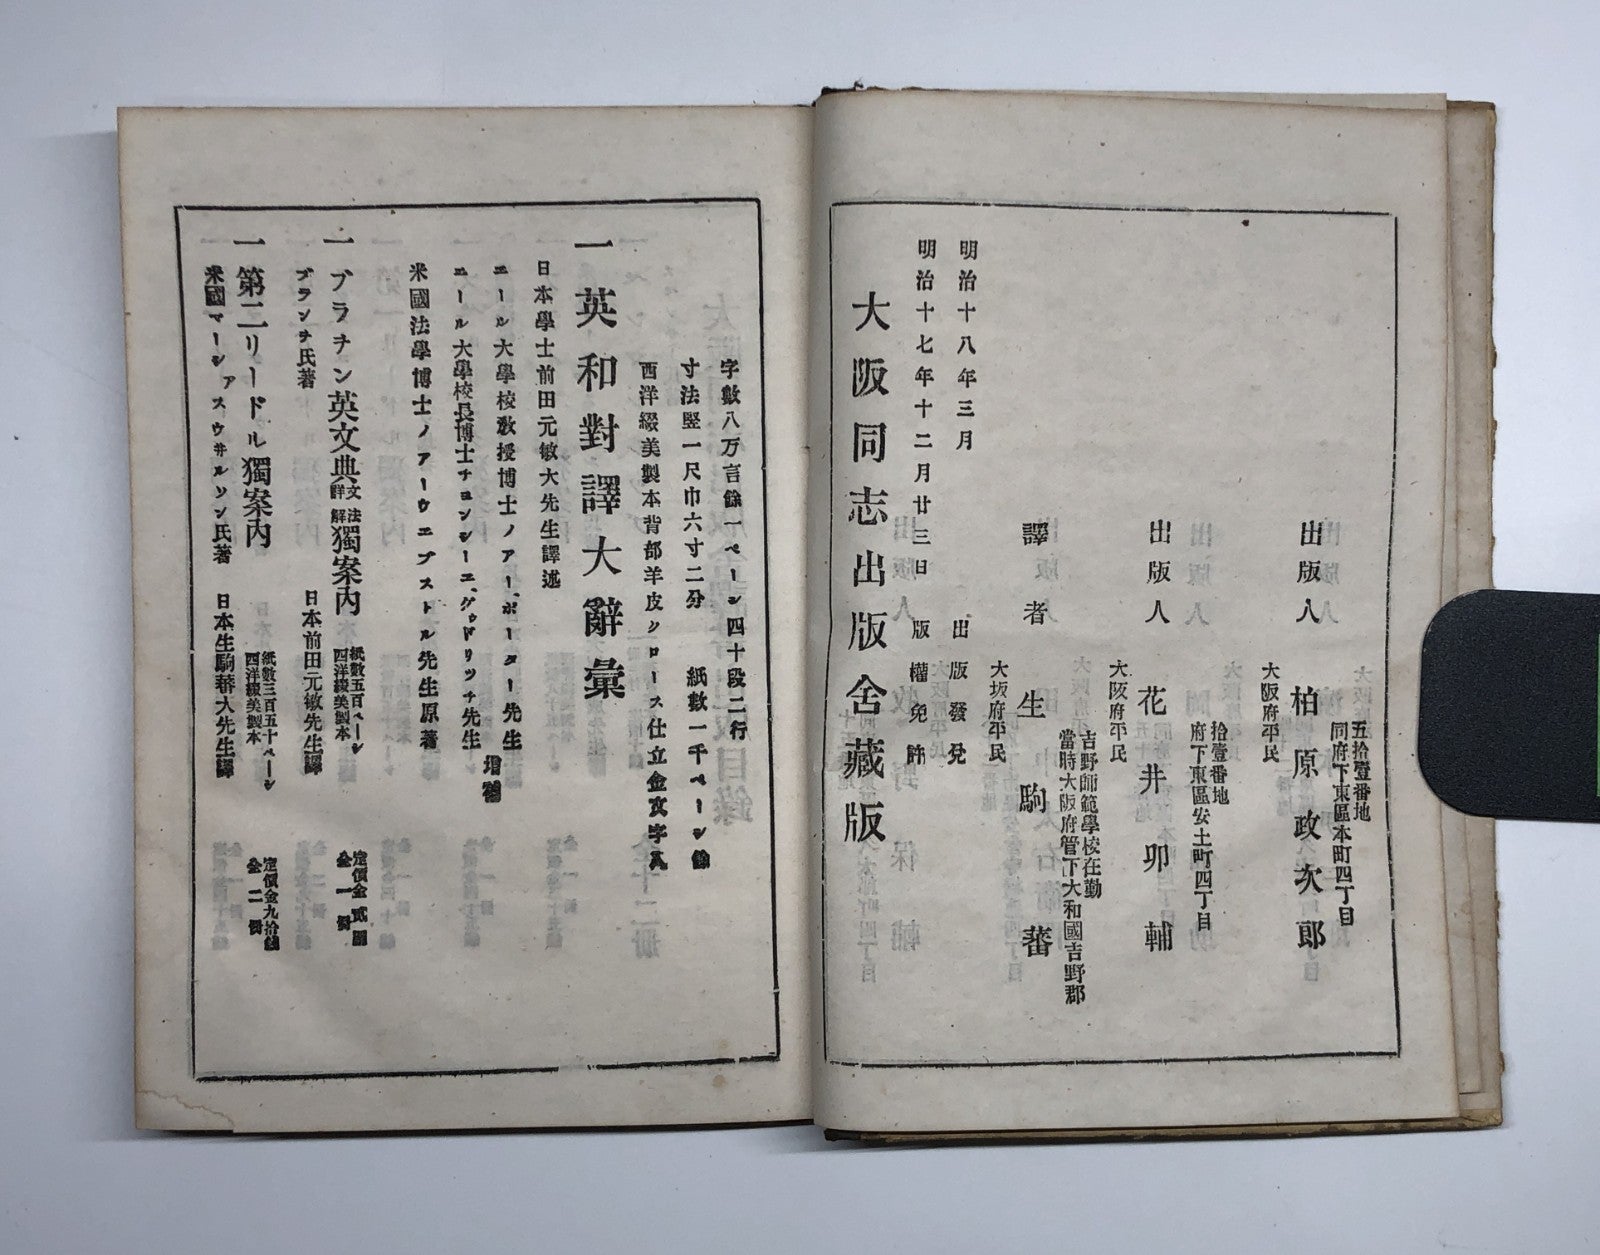 明治十八年三月 出版發兌
明治十七年十二月廿三日 版權免許
譯者
大坂府平民
生駒蕃
吉野師範學校在勤
當時大阪府管下大和國吉野郡
出版人
大阪府平民
花井卯輔
拾壹番地
府下東區安土町四丁目
出版人
大阪府平民
柏原政次郎
五拾壹番地
同府下東區本町四丁目
大阪同志出版舍藏版
字數八万言餘一ページ四十段二行
寸法竪一尺巾六寸二分 紙數一千ページ餘
西洋綴美製本背部羊皮クロース仕立金文字入
一英和對譯大辭彙
日本學士前田元敏大先生譯述
エール大學校敎授博士ノアー、ポーター先生
エール大學校長博士チヨンシーエ、グゥドリッチ先生 增補
米國法學博士ノアーウエブストル先生原著
一ブラチン英文典文法詳解獨案內 紙數五百ページ 西洋綴美製本 定價金貳圓 全一冊
ブランチ氏著 日本前田元敏先生譯
一第二リードル獨案內 紙數三百五十ページ 西洋綴美製本 定價金九拾錢 全二冊
米國マーシアスウ井ルソン氏著 日本生駒蕃大先生譯